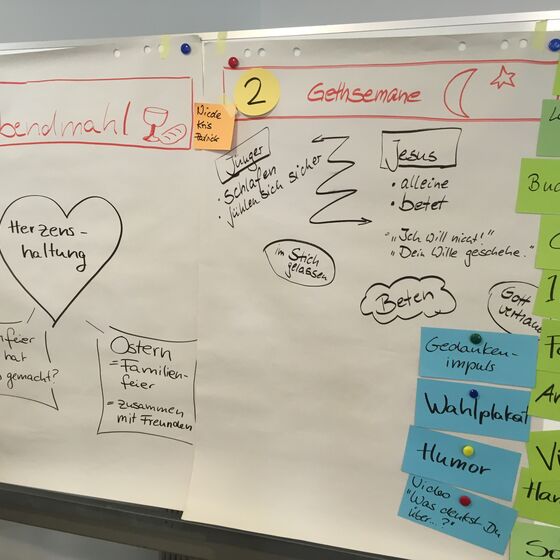 bendmahl
Nicole
Kris
Patrick
2
Gethsemane
Jünger
• schlafen
• fühlen sich sicher
Jesus
• alleine
• betet
"Ich will nicht!"
"Dein Wille geschehe."
im Stich
gelassen
Beten
Gott
vertrauen
Herzens-
haltung
nfeier
hat
gemacht?
Ostern
= Familien-
feier
= zusammen
mit Freunden
Gedanken-
impuls
Wahlplakat
Humor
Video
"Was denkst Du
über...?"